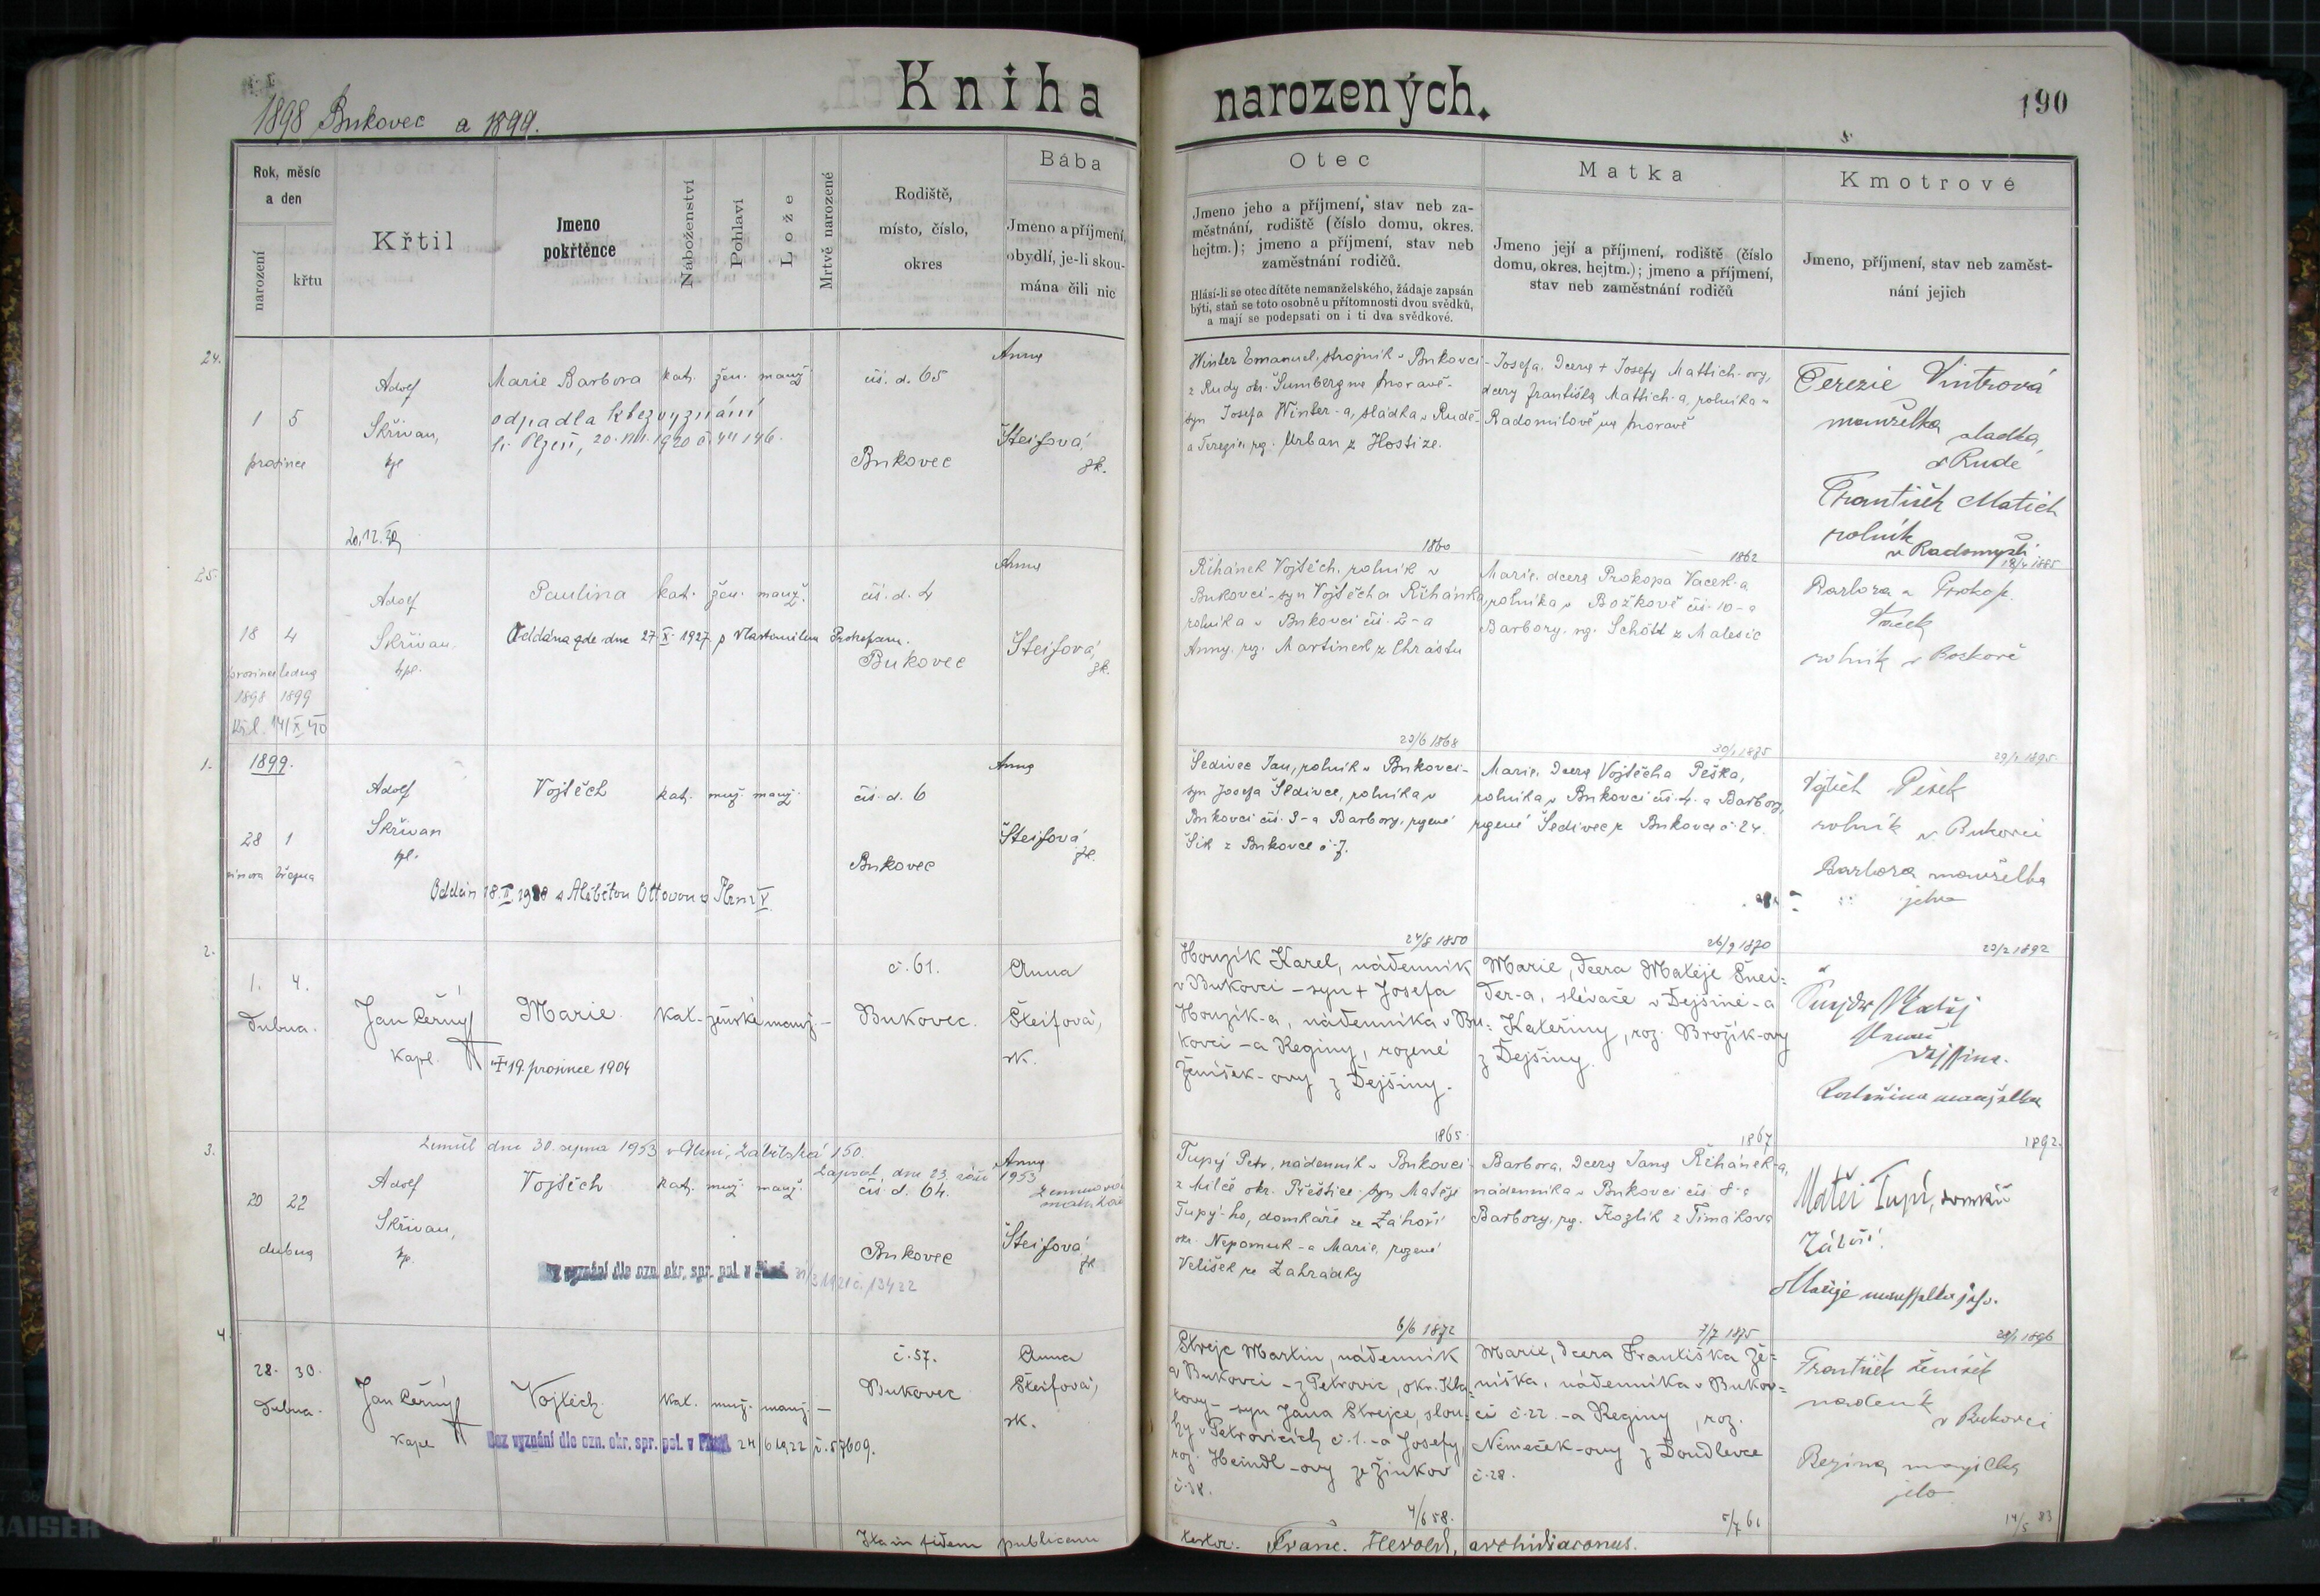 Kniha narozených.
190
1898 Bukovec a 1899.
Rok, měsíc a den
narození
křtu
Křtil
Jmeno pokřtěnce
Náboženství
Pohlaví
Lože
Mrtvě narozené
Rodiště, místo, číslo, okres
Bába
Jmeno a příjmení, obydlí, je-li skoumána čili nic
Otec
Jmeno jeho a příjmení, stav neb za-
městnání, rodiště (číslo domu, okres.
hejtm.); jmeno a příjmení, stav neb
zaměstnání rodičů.
Hlásí-li se otec dítěte nemanželského, žádaje zapsán
býti, staň se toto osobně u přítomnosti dvou svědků,
a mají se podepsati on i ti dva svědkové.
Matka
Jmeno její a příjmení, rodiště (číslo
domu, okres. hejtm.); jmeno a příjmení,
stav neb zaměstnání rodičů
Kmotrové
Jmeno, příjmení, stav neb zaměst-
nání jejich
24.
1 5
prosince
Adolf
Skřivan,
kpl
20.12.
Marie Barbora kat. žen. manž.
odpadla k bezvyznání
Plzeň, 20. VIII. 1920
čís. d. 65
Bukovec
Anna
Šteifová,
zk.
Winter Emanuel, strojník v Bukovci-
z Rudy okr. Šumberg na Moravě-
syn Josefa Winter-a, sládka v Rudě-
a Terezie, roz. Urban z Hostize.
1860
Josefa, dcera + Josefy Mattich-ovy,
dcery Františka Mattich-a, rolníka v
Radomilově na Moravě
1862
Terezie Vintrová
manželka sladka
v Rudé
František Matich
rolník
18/ 1885
25.
18 4
prosince ledna
1898 1899
14/X 40
Adolf
Skřivan,
kpl.
Paulina kat. žen. manž.
Oddána zde dne 27. X. 1927 s Vlastimilem Prokopem.
čís. d. 4
Bukovec
Anna
Šteifová,
zk.
Řihánek Vojtěch, rolník v
Bukovci-syn Vojtěcha Řihánka,
rolníka v Bukovci čís. 2-a
Anny, roz. Martinec z Chrástu
23/6 1868
Marie, dcera Prokopa Vacek-a
rolníka v Božkově čís. 10-a
Barbory, roz. Schött z Malesic
30/ 1875
Barbora a Prokop
Vacek
rolník v Boskově
29/ 1895
1.
1899.
28 1
února března
Adolf
Skřivan
kpl.
Vojtěch kat. muž. manž.
Oddán 18. s Alžbětou Ottovou v Plzni V.
čís. d. 6
Bukovec
Anna
Šteifová,
zk.
Šedivec Jan, rolník v Bukovci-
syn Josefa Šedivce, rolníka v
Bukovci čís. 3-a Barbory, rozené
Šik z Bukovce č. 7.
24/8 1850
Marie, dcera Vojtěcha Peška,
rolníka v Bukovci čís. 4. a Barbory,
rozené Šedivec z Bukovce č. 24.
26/9 1870
Vojtěch Pešek
rolník v Bukovci
Barbora manželka
jeho
23/2 1892
2.
1. 4.
Dubna.
Jan Černý
Kapl.
Marie. Kat. ženské manž. —
+ 19. prosince 1904
č. 61.
Bukovec.
Anna
Šteifová,
zk.
Houzík Karel, nádenník
v Bukovci - syn + Josefa
Houzík-a, nádenníka v Bu-
kovci - a Reginy, rozené
Ženíšek-ovy z Dejšiny.
1865.
Marie, dcera Matěje Šnei-
der-a, slévače v Dejšině - a
Kateřiny, roz. Brožík-ovy
z Dejšiny.
1867
Matěj
Kateřina manželka
1892.
3.
20 22
dubna
Adolf
Skřivan,
kp.
Zemřel dne 30. srpna 1953 v Plzni, Zábělská 150.
Zapsal dne 23. září 1953
Vojtěch kat. muž. manž.
Bez vyznání dle ozn. okr. spr. pol. v Plzni 31/3 1921 č. 13422
čís. d. 64.
Bukovec
Anna
Šteifová,
zk.
Tupý Petr, nádenník v Bukovci
z Milče okr. Přeštice-syn Matěje
Tupý-ho, domkáře ze Záhoří
okr. Nepomuk-a Marie, rozené
Velíšek ze Zahrádky
6/6 1872
Barbora, dcera Jana Řihánek-a,
nádenníka v Bukovci čís. 8-a
Barbory, roz. Kozlík z Timákova
7/7 1875
Matěj Tupí, domkář
Záhoří.
Marije manželka jeho.
28/ 1896
4.
28. 30.
Dubna.
Jan Černý
Kapl
Vojtěch Kat. muž. manž. —
Bez vyznání dle ozn. okr. spr. pol. v Plzni 24/6 1922 č. 57609.
č. 57.
Bukovec
Anna
Šteifová,
zk.
Strejc Martin, nádenník
v Bukovci - z Petrovic, okr. Kla-
tovy - syn Jana Strejce, slou-
hy v Petrovicích č. 1. - a Josefy,
roz. Heindl-ovy ze Žinkov
č. 38.
4/6 58.
Marie, dcera Františka Že-
níška, nádenníka v Bukov-
ci č. 22 - a Reginy, roz.
Němeček-ovy z Doudlevce
č. 28.
5/7 61
František Ženíšek
nadeník
v Bukovci
Regina manželka
jeho
14/5 83
Ita in fidem publicam testor. Franc. Herold, archidiaconus.